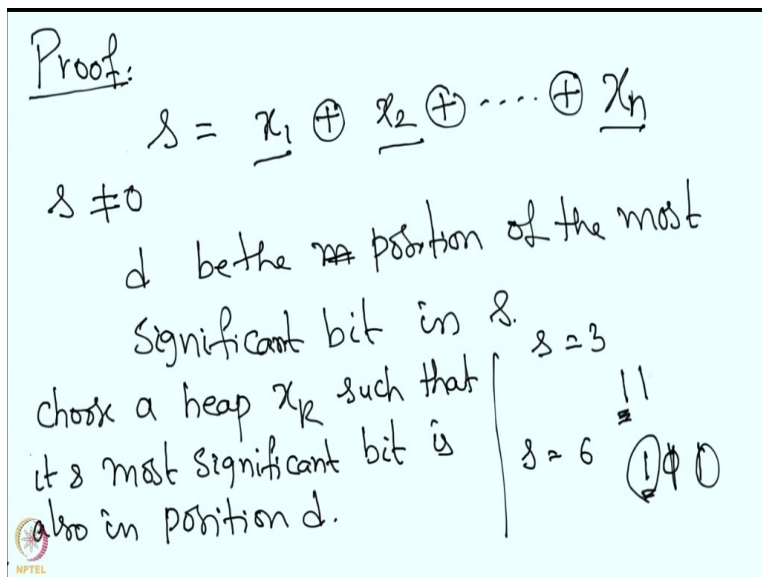 Proof:
s = x₁ ⊕ x₂ ⊕ ---- ⊕ xₙ
s ≠ 0
d be the position of the most
significant bit in s.
choose a heap xₖ such that
its most significant bit is
also in position d.
s = 3
11
s = 6 110
NPTEL